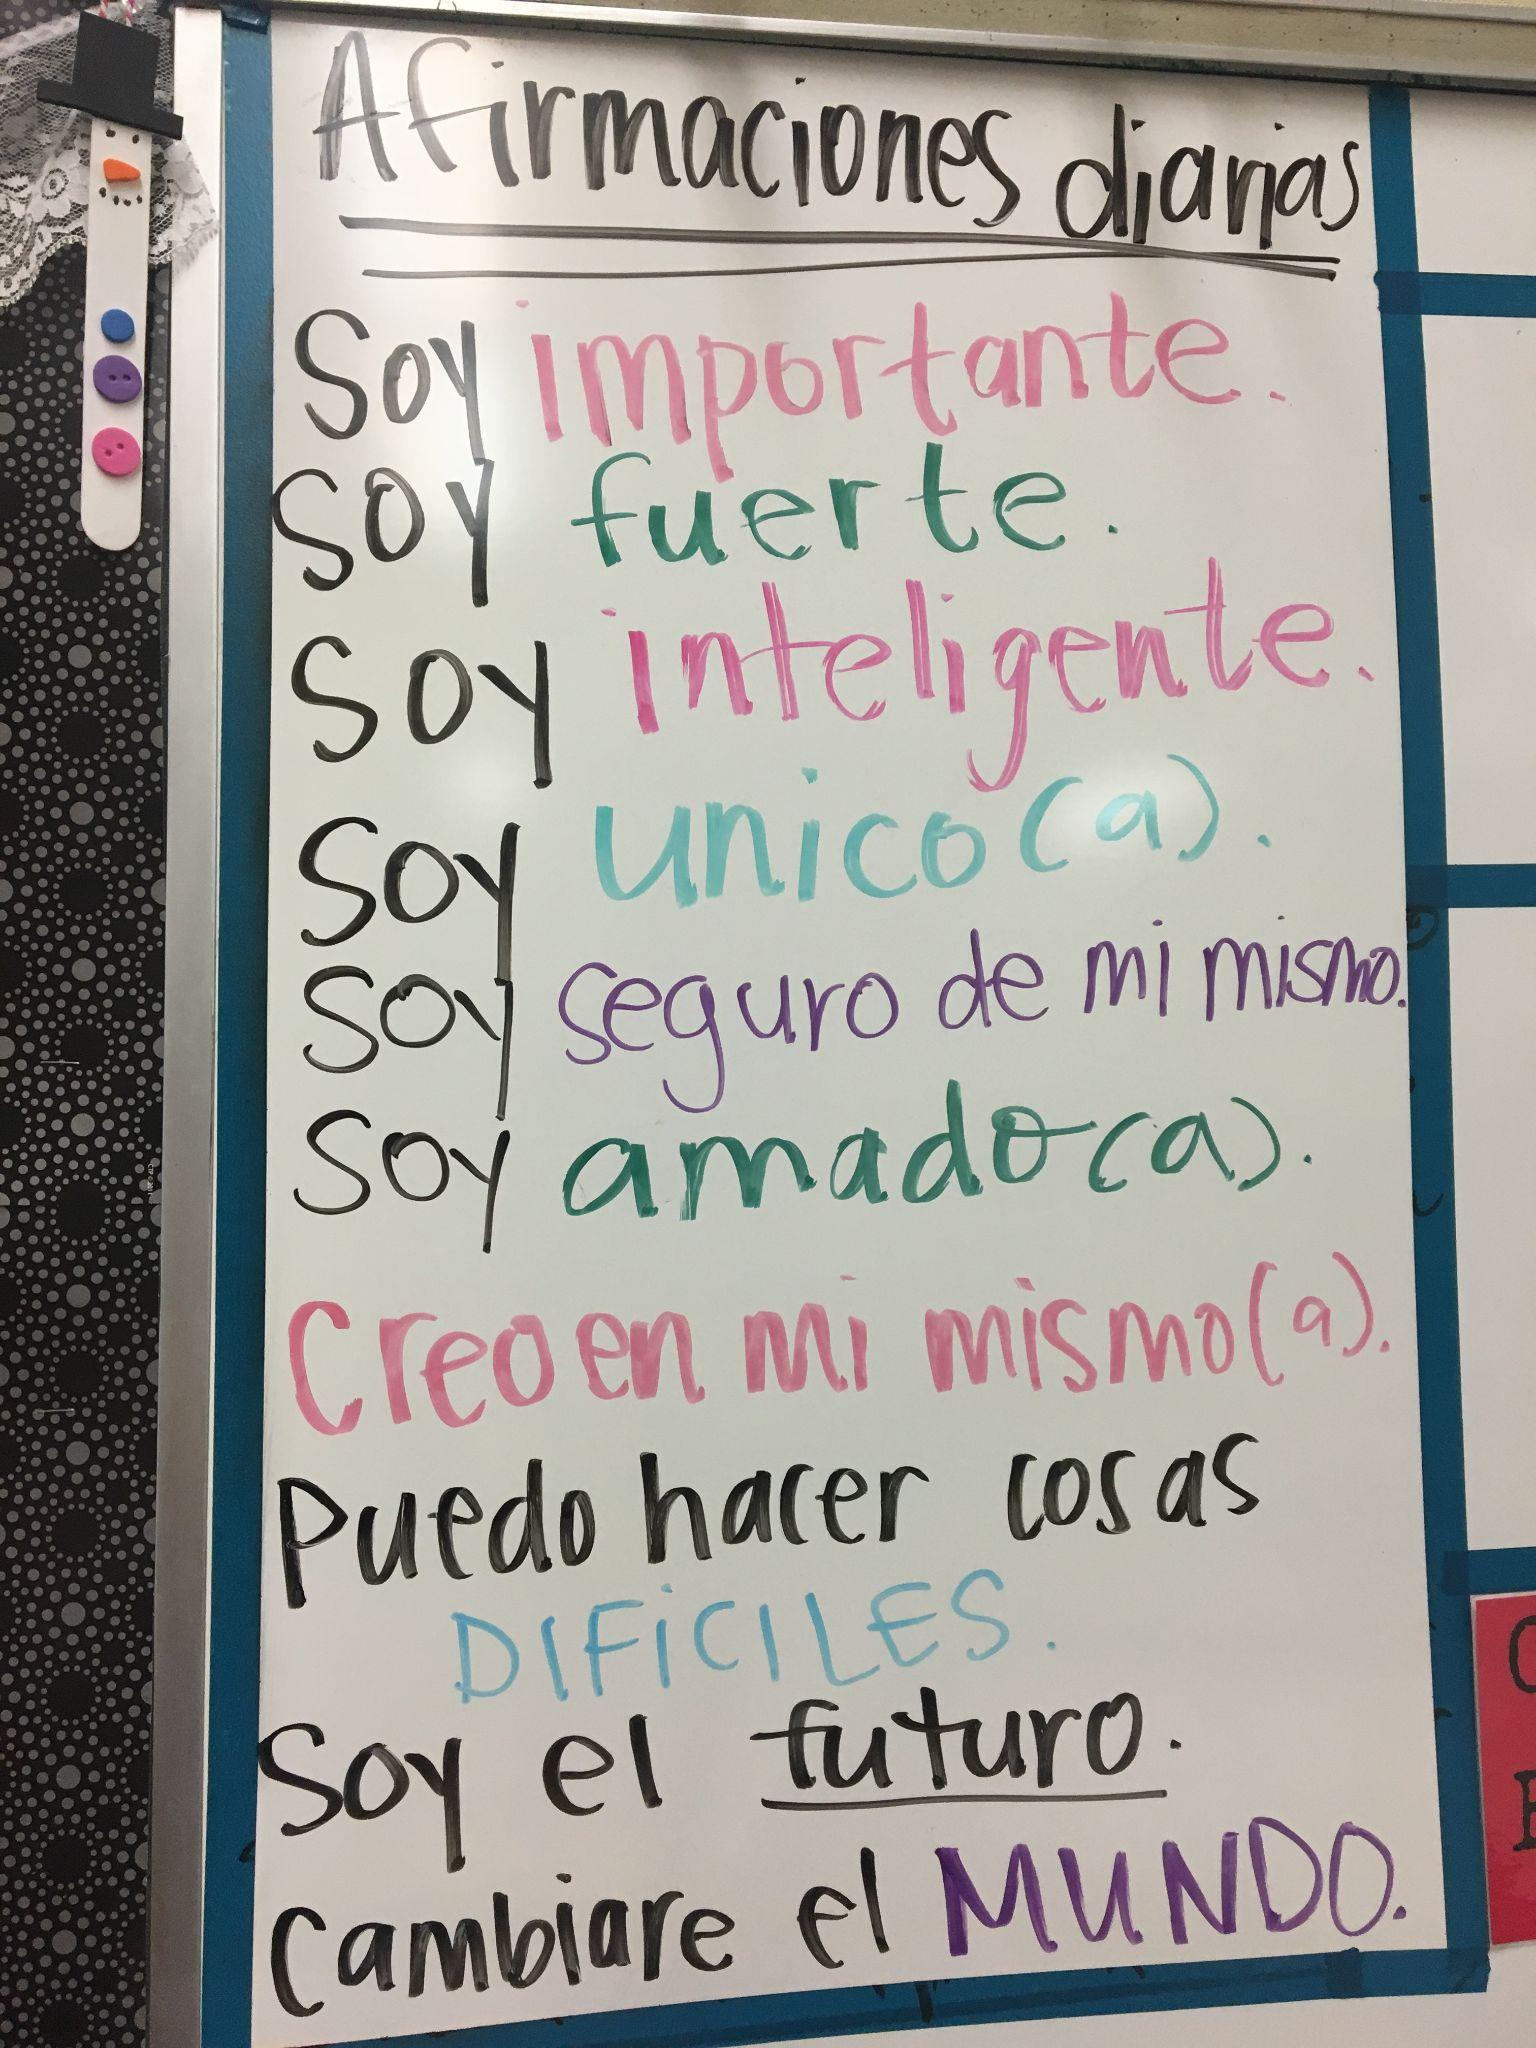 Afirmaciones diarias
Soy importante.
Soy fuerte.
Soy inteligente.
Soy unico(a).
Soy seguro de mi mismo.
Soy amado(a).
Creo en mi mismo(a).
Puedo hacer cosas
DIFICILES.
Soy el futuro.
Cambiare el MUNDO.